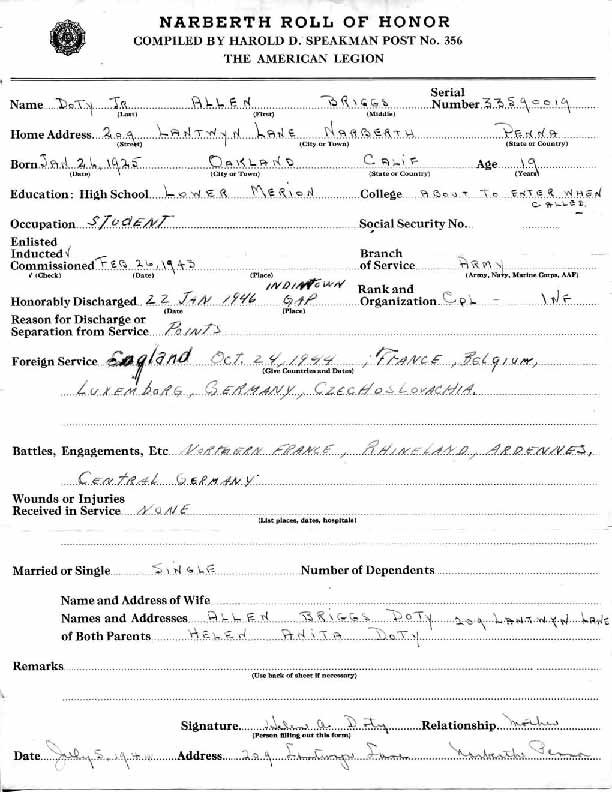 NARBERTH ROLL OF HONOR
COMPILED BY HAROLD D. SPEAKMAN POST No. 356
THE AMERICAN LEGION
Serial
Name DOTY JR ALLEN BRIGGS Number 33590019
(Last) (First) (Middle)
Home Address 209 LANTWYN LANE NARBERTH PENNA
(Street) (City or Town) (State or Country)
Born JAN 26, 1925 OAKLAND CALIF Age 19
(Date) (City or Town) (State or Country) (Years)
Education: High School LOWER MERION College ABOUT TO ENTER WHEN
CALLED.
Occupation STUDENT Social Security No.
Enlisted
Inducted √ Branch
Commissioned FEB 26, 1943 of Service ARMY
√ (Check) (Date) (Place) (Army, Navy, Marine Corps, AAF)
INDIANTOWN Rank and
Honorably Discharged 22 JAN 1946 GAP Organization CPL - INF
(Date (Place)
Reason for Discharge or
Separation from Service POINTS
Foreign Service England OCT. 24, 1944, FRANCE, BELGIUM,
(Give Countries and Dates)
LUXEMBORG, GERMANY, CZECHOSLOVACHIA.
Battles, Engagements, Etc NORTHERN FRANCE, RHINELAND, ARDENNES,
CENTRAL GERMANY
Wounds or Injuries
Received in Service NONE
(List places, dates, hospitals)
Married or Single SINGLE Number of Dependents
Name and Address of Wife
Names and Addresses ALLEN BRIGGS DOTY 209 LANTWYN LANE
of Both Parents HELEN ANITA DOTY
Remarks
(Use back of sheet if necessary)
Signature Helen A. Doty Relationship Mother
(Person filling out this form)
Date July 5, Address 209 Lantwyn Lane Narberth Penna